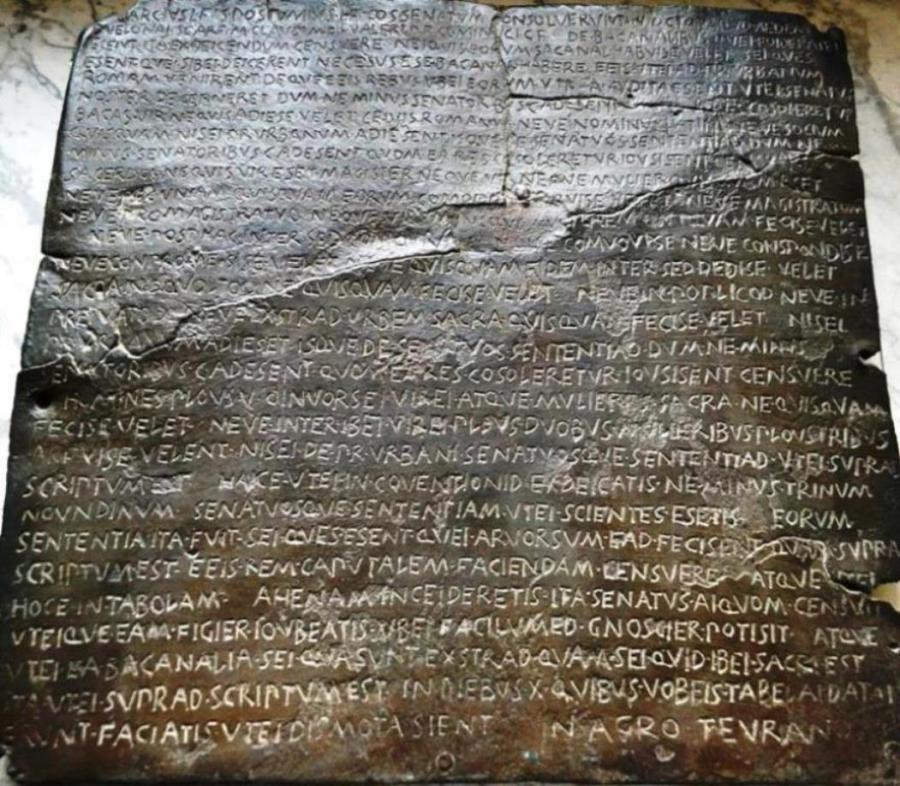 MARCIVS·L·F·S·POSTVMIVS·L·F·COS·SENATVM CONSOLVERVNT N OCTOB APVD AEDEM
DVELONAI SC ARF M CLAVDI M F L VALERI P F MINVCI C F DE BACANALIBVS QVEI FOIDERATEI
ESENT ITA EXDEICENDVM CENSVERE NEIQVIS EORVM SACANAL HABVISE VELET SEI QVES
ESENT QVEI SIBEI DEICERENT NECESVS ESE BACANAL HABERE EEIS VTEI AD PR VRBANVM
ROMAM VENIRENT DEQVE EEIS REBVS VBEI EORVM VTR A AVDITA ESENT VTEI SENATVS
NOSTER DECERNERET DVM NE MINVS SENATORBVS C ADESENT RES COSOLERETVR
BACAS VIR NEQVIS ADIESE VELET CEIVIS ROMANVS NEVE NOMINVS LATINI NEVE SOCIVM
QVISQVAM NISEI PR VRBANVM ADIESENT ISQVE SENATVOS SENTENTIAD DVM NE
MINVS SENATORIBVS C ADESENT QVOM EA RES COSOLERETVR IOVSISENT
SACERDOS NEQVIS VIR ESET MAGISTER NEQVE VIR NEQVE MVLIER QVISQVAM ESET
NEVE PECVNIAM QVISQVAM EORVM VELET NEVE MAGISTRATVM
NEVE PRO MAGISTRATVD NEQVE VIRVM QVIQVAM FECISE VELET
NEVE POST HAC INTER SED COMVOVISE NEVE CONSPONDISE
NEVE CONPROMESISE VELET NEVE QVISQVAM FIDEM INTER SED DEDISE VELET
SACRA IN OQVOLTOD NE QVISQVAM FECISE VELET NEVE IN POPLICOD NEVE IN
PREIVATOD NEVE EXSTRAD VRBEM SACRA QVISQVAM FECISE VELET NISEI
VRBANVM ADIESET ISQVE DE SENATVOS SENTENTIAD DVM NE MINVS
SENATORIBVS C ADESENT QVOM EA RES COSOLERETVR IOVSISENT CENSVERE
HOMINES PLOVS V OINVORSEI VIREI ATQVE MVLIERES SACRA NE QVISQVAM
FECISE VELET NEVE INTER IBEI VIREI PLOVS DVOBVS MVLIERIBVS PLOVS TRIBVS
ARFVISE VELENT NISEI DE PR VRBANI SENATVOSQVE SENTENTIAD VTEI SVPRAD
SCRIPTVM EST HAICE VTEI IN COVENTIONID EXDEICATIS NE MINVS TRINVM
NOVNDINVM SENATVOSQVE SENTENTIAM VTEI SCIENTES ESETIS EORVM
SENTENTIA ITA FVIT SEI QVES ESENT QVEI ARVORSVM EAD FECISENT QVAM SVPRAD
SCRIPTVM EST EEIS REM CAPVTALEM FACIENDAM CENSVERE ATQVE VTEI
HOCE IN TABOLAM AHENAM INCEIDERETIS ITA SENATVS AIQVOM CENSVIT
VTEIQVE EAM FIGIER IOVBEATIS VBEI FACILVMED GNOSCIER POTISIT ATQVE
VTEI EA BACANALIA SEI QVA SVNT EXSTRAD QVAM SEI QVID IBEI SACRI EST
ITA VTEI SVPRAD SCRIPTVM EST IN DIEBVS X QVIBVS VOBEIS TABELAI DATAI
ERVNT FACIATIS VTEI DISMOTA SIENT IN AGRO TEVRANO